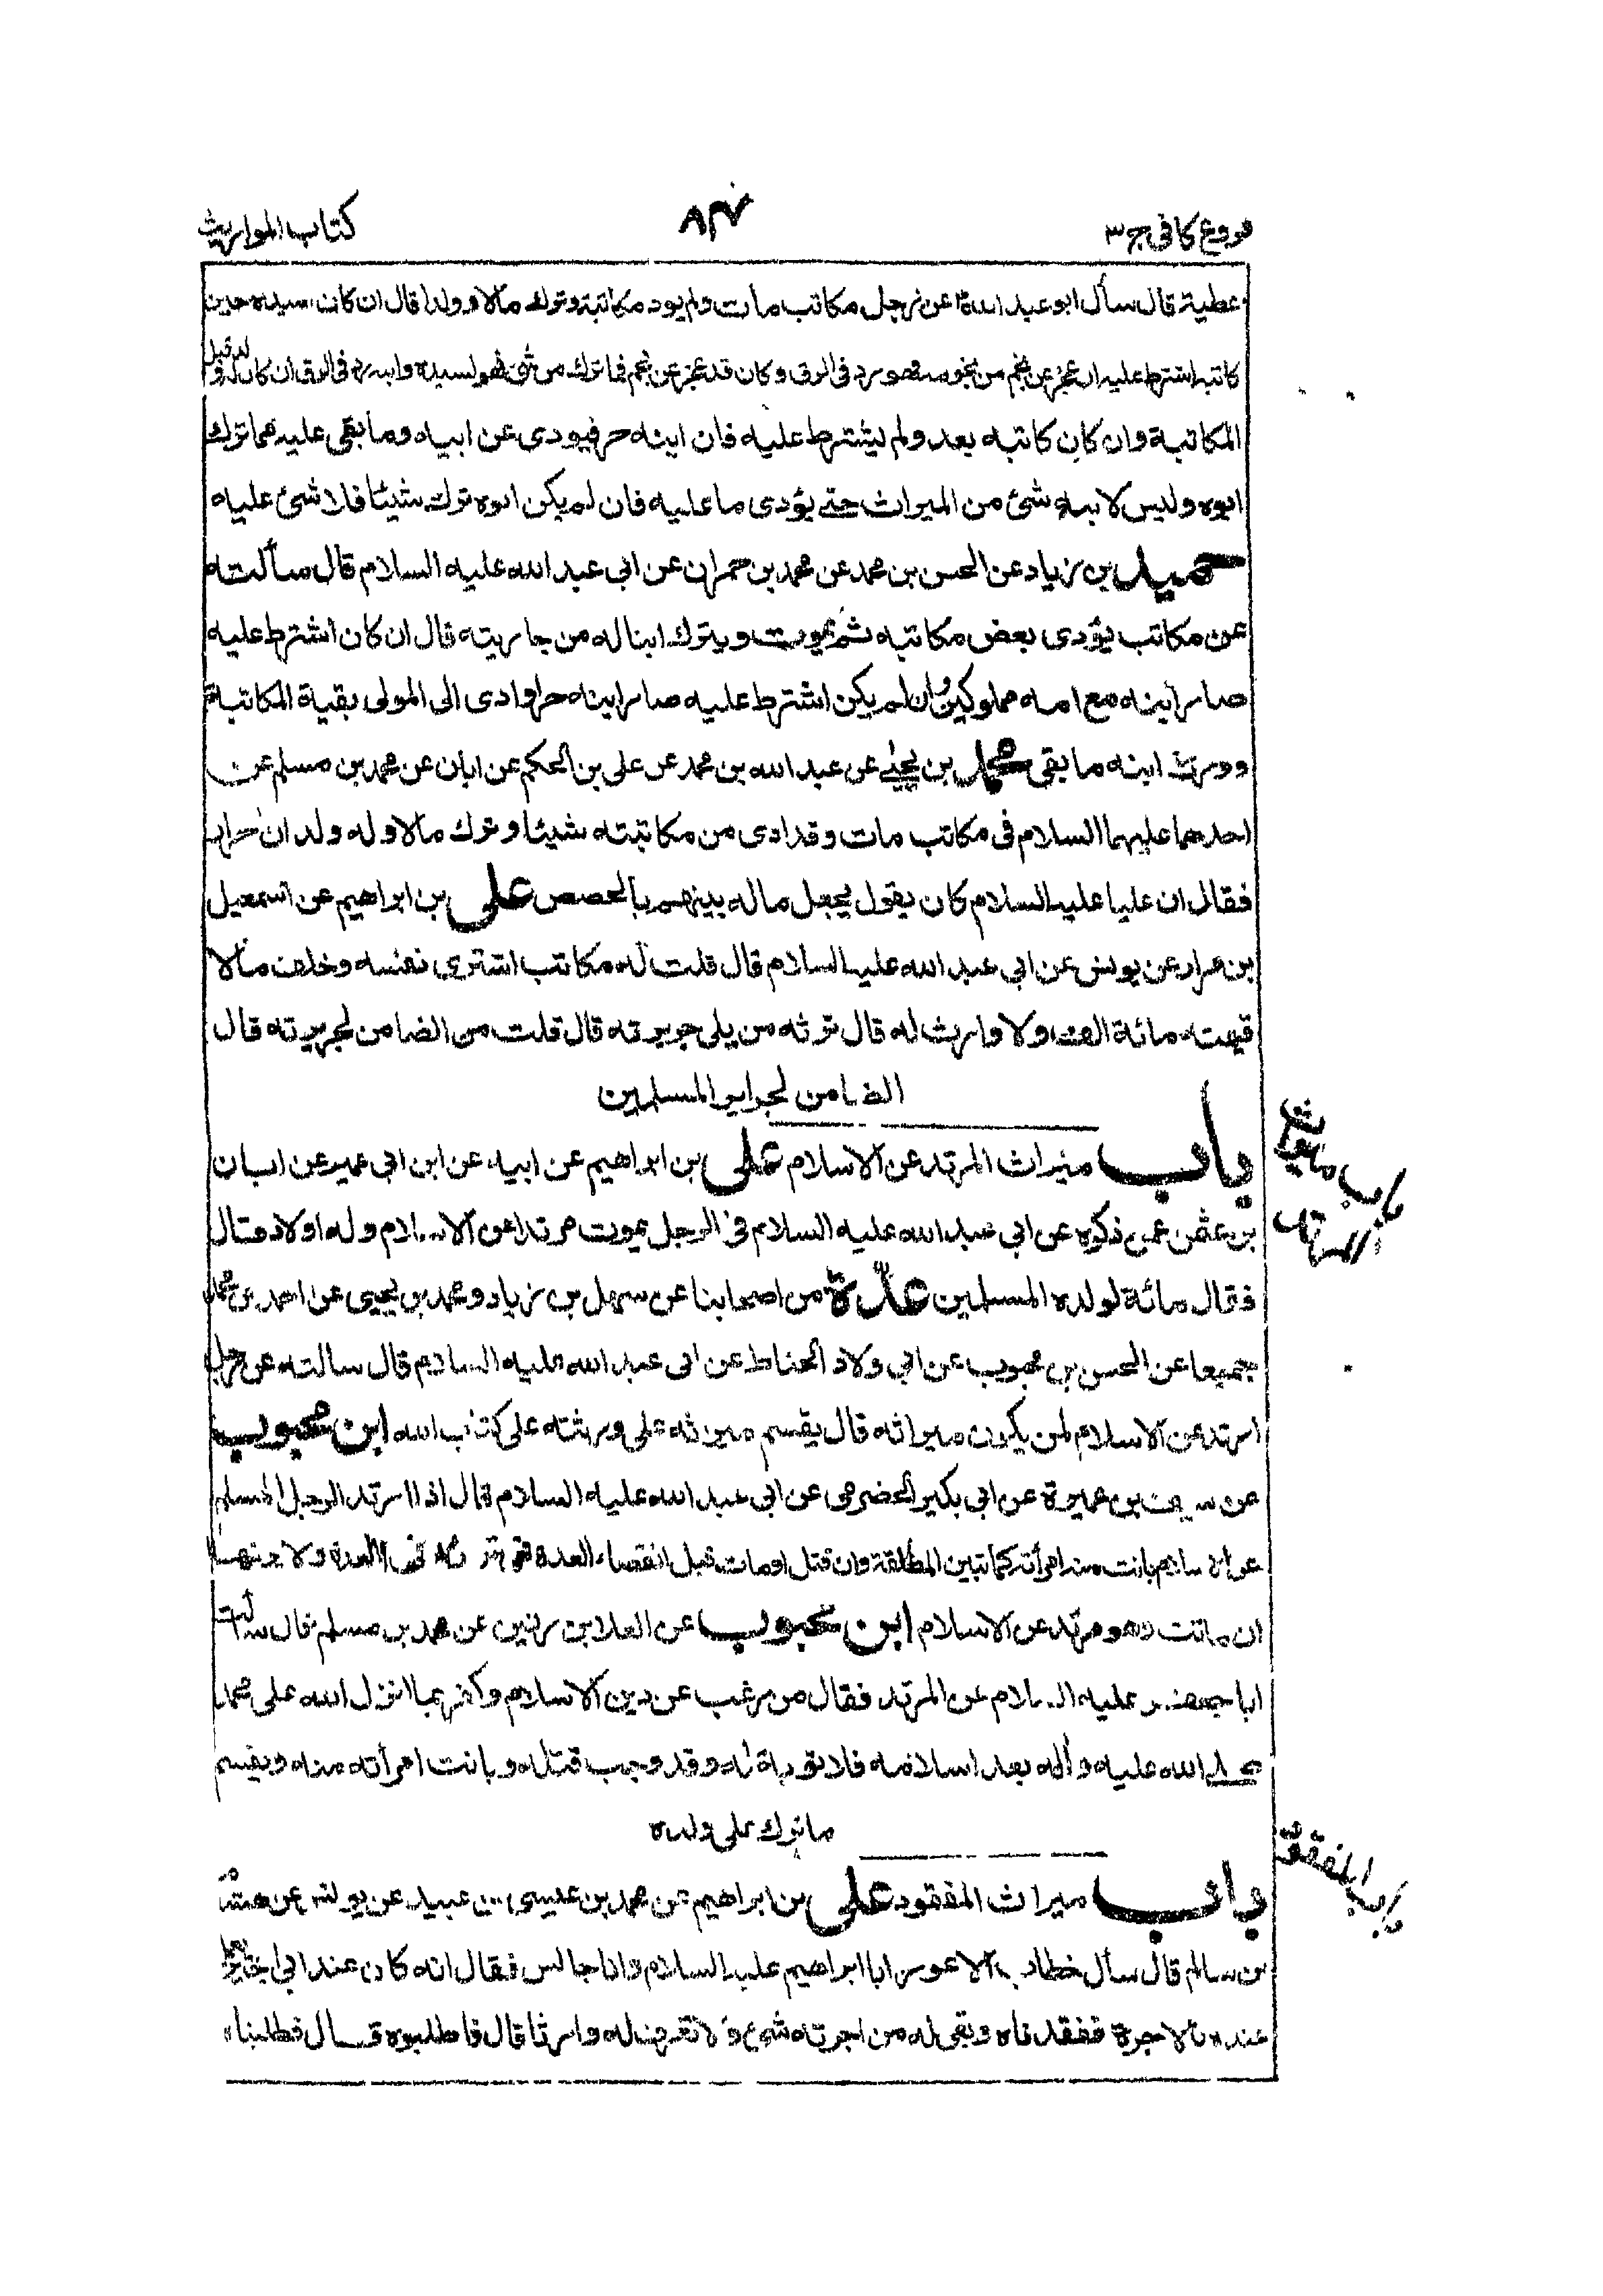 فروع كافى ج ٣
٨٣
كتاب المواريث
عطية قال سأل ابو عبد الله عن رجل مكاتب مات ولم يود مكاتبته وترك مالا وولدا قال ان كان سيده حين
كاتبه اشترط عليه ان عجز عن نجم من نجومه فهو رد فى الرق وكان قد عجز عن نجم فما ترك من شئ فهو لسيده وابنه رد فى الرق ان كان له ولد قبل
المكاتبة وان كان كاتبه بعد ولم يشترط عليه فان ابنه حر فيودى عن ابيه وما بقى عليه مما ترك
ابوه وليس لابنه شئ من الميراث حتى يؤدى ما عليه فان لم يكن ابوه ترك شيئا فلا شئ عليه
حميد بن زياد عن الحسن بن محمد عن محمد بن حمران عن ابى عبد الله عليه السلام قال سألته
عن مكاتب يؤدى بعض مكاتبته ثم يموت ويترك ابنا له من جاريته قال ان كان اشترط عليه
صار ابنه مع امه مملوكين وان لم يكن اشترط عليه صار ابنه حرا وادى الى المولى بقية المكاتبة
وورث ابنه ما بقى محمد بن يحيى عن عبد الله بن محمد عن على بن الحكم عن ابان عن محمد بن مسلم عن
احدهما عليهما السلام فى مكاتب مات وقد ادى من مكاتبته شيئا وترك مالا وله ولدان احرار
فقال ان عليا عليه السلام كان يقول يجعل ماله بينهم بالحصص على بن ابراهيم عن اسمعيل
بن مرار عن يونس عن ابى عبد الله عليه السلام قال قلت له مكاتب اشترى نفسه وخلف مالا
قيمته مائة الف ولا وارث له قال يرثه من يلى جريرته قال قلت من الضامن لجريرته قال
الضامن لجراير المسلمين
باب ميراث المرتد عن الاسلام على بن ابراهيم عن ابيه عن ابن ابى عمير عن ابان
بن عثمن عمن ذكره عن ابى عبد الله عليه السلام فى الرجل يموت مرتدا عن الاسلام وله اولاد فقال
فقال مائة لولده المسلمين عدة من اصحابنا عن سهل بن زياد ومحمد بن يحيى عن احمد بن محمد
جميعا عن الحسن بن محبوب عن ابى ولاد الحناط عن ابى عبد الله عليه السلام قال سالته عن رجل
ارتد عن الاسلام لمن يكون ميراثه قال يقسم ميراثه على ورثته على كتاب الله ابن محبوب
عن سيف بن عميرة عن ابى بكير الحضرمى عن ابى عبد الله عليه السلام قال اذا ارتد الرجل المسلم
عن الاسلام بانت منه امرأته كما تبين المطلقة وان قتل او مات قبل انقضاء العدة فهى ترثه فى العدة ولا يرثها
ان ماتت وهو مرتد عن الاسلام ابن محبوب عن العلا بن رزين عن محمد بن مسلم قال سألت
ابا جعفر عليه السلام عن المرتد فقال من رغب عن دين الاسلام وكفر بما انزل الله على محمد
صلى الله عليه وآله بعد اسلامه فلا توبة له وقد وجب قتله وبانت امرأته منه ويقسم
ما ترك على ولده
باب ميراث المفقود على بن ابراهيم عن محمد بن عيسى بن عبيد عن يونس عن هشام
بن سالم قال سأل خطاب الاعور ابا ابراهيم عليه السلام وانا جالس فقال انه كان عند ابى
عنده بالاجرة ففقدناه وبقى له من اجرته شئ ولا نعرف له وارثا قال فاطلبوه قال فطلبناه
باب ميراث
المرتد
باب المفقود